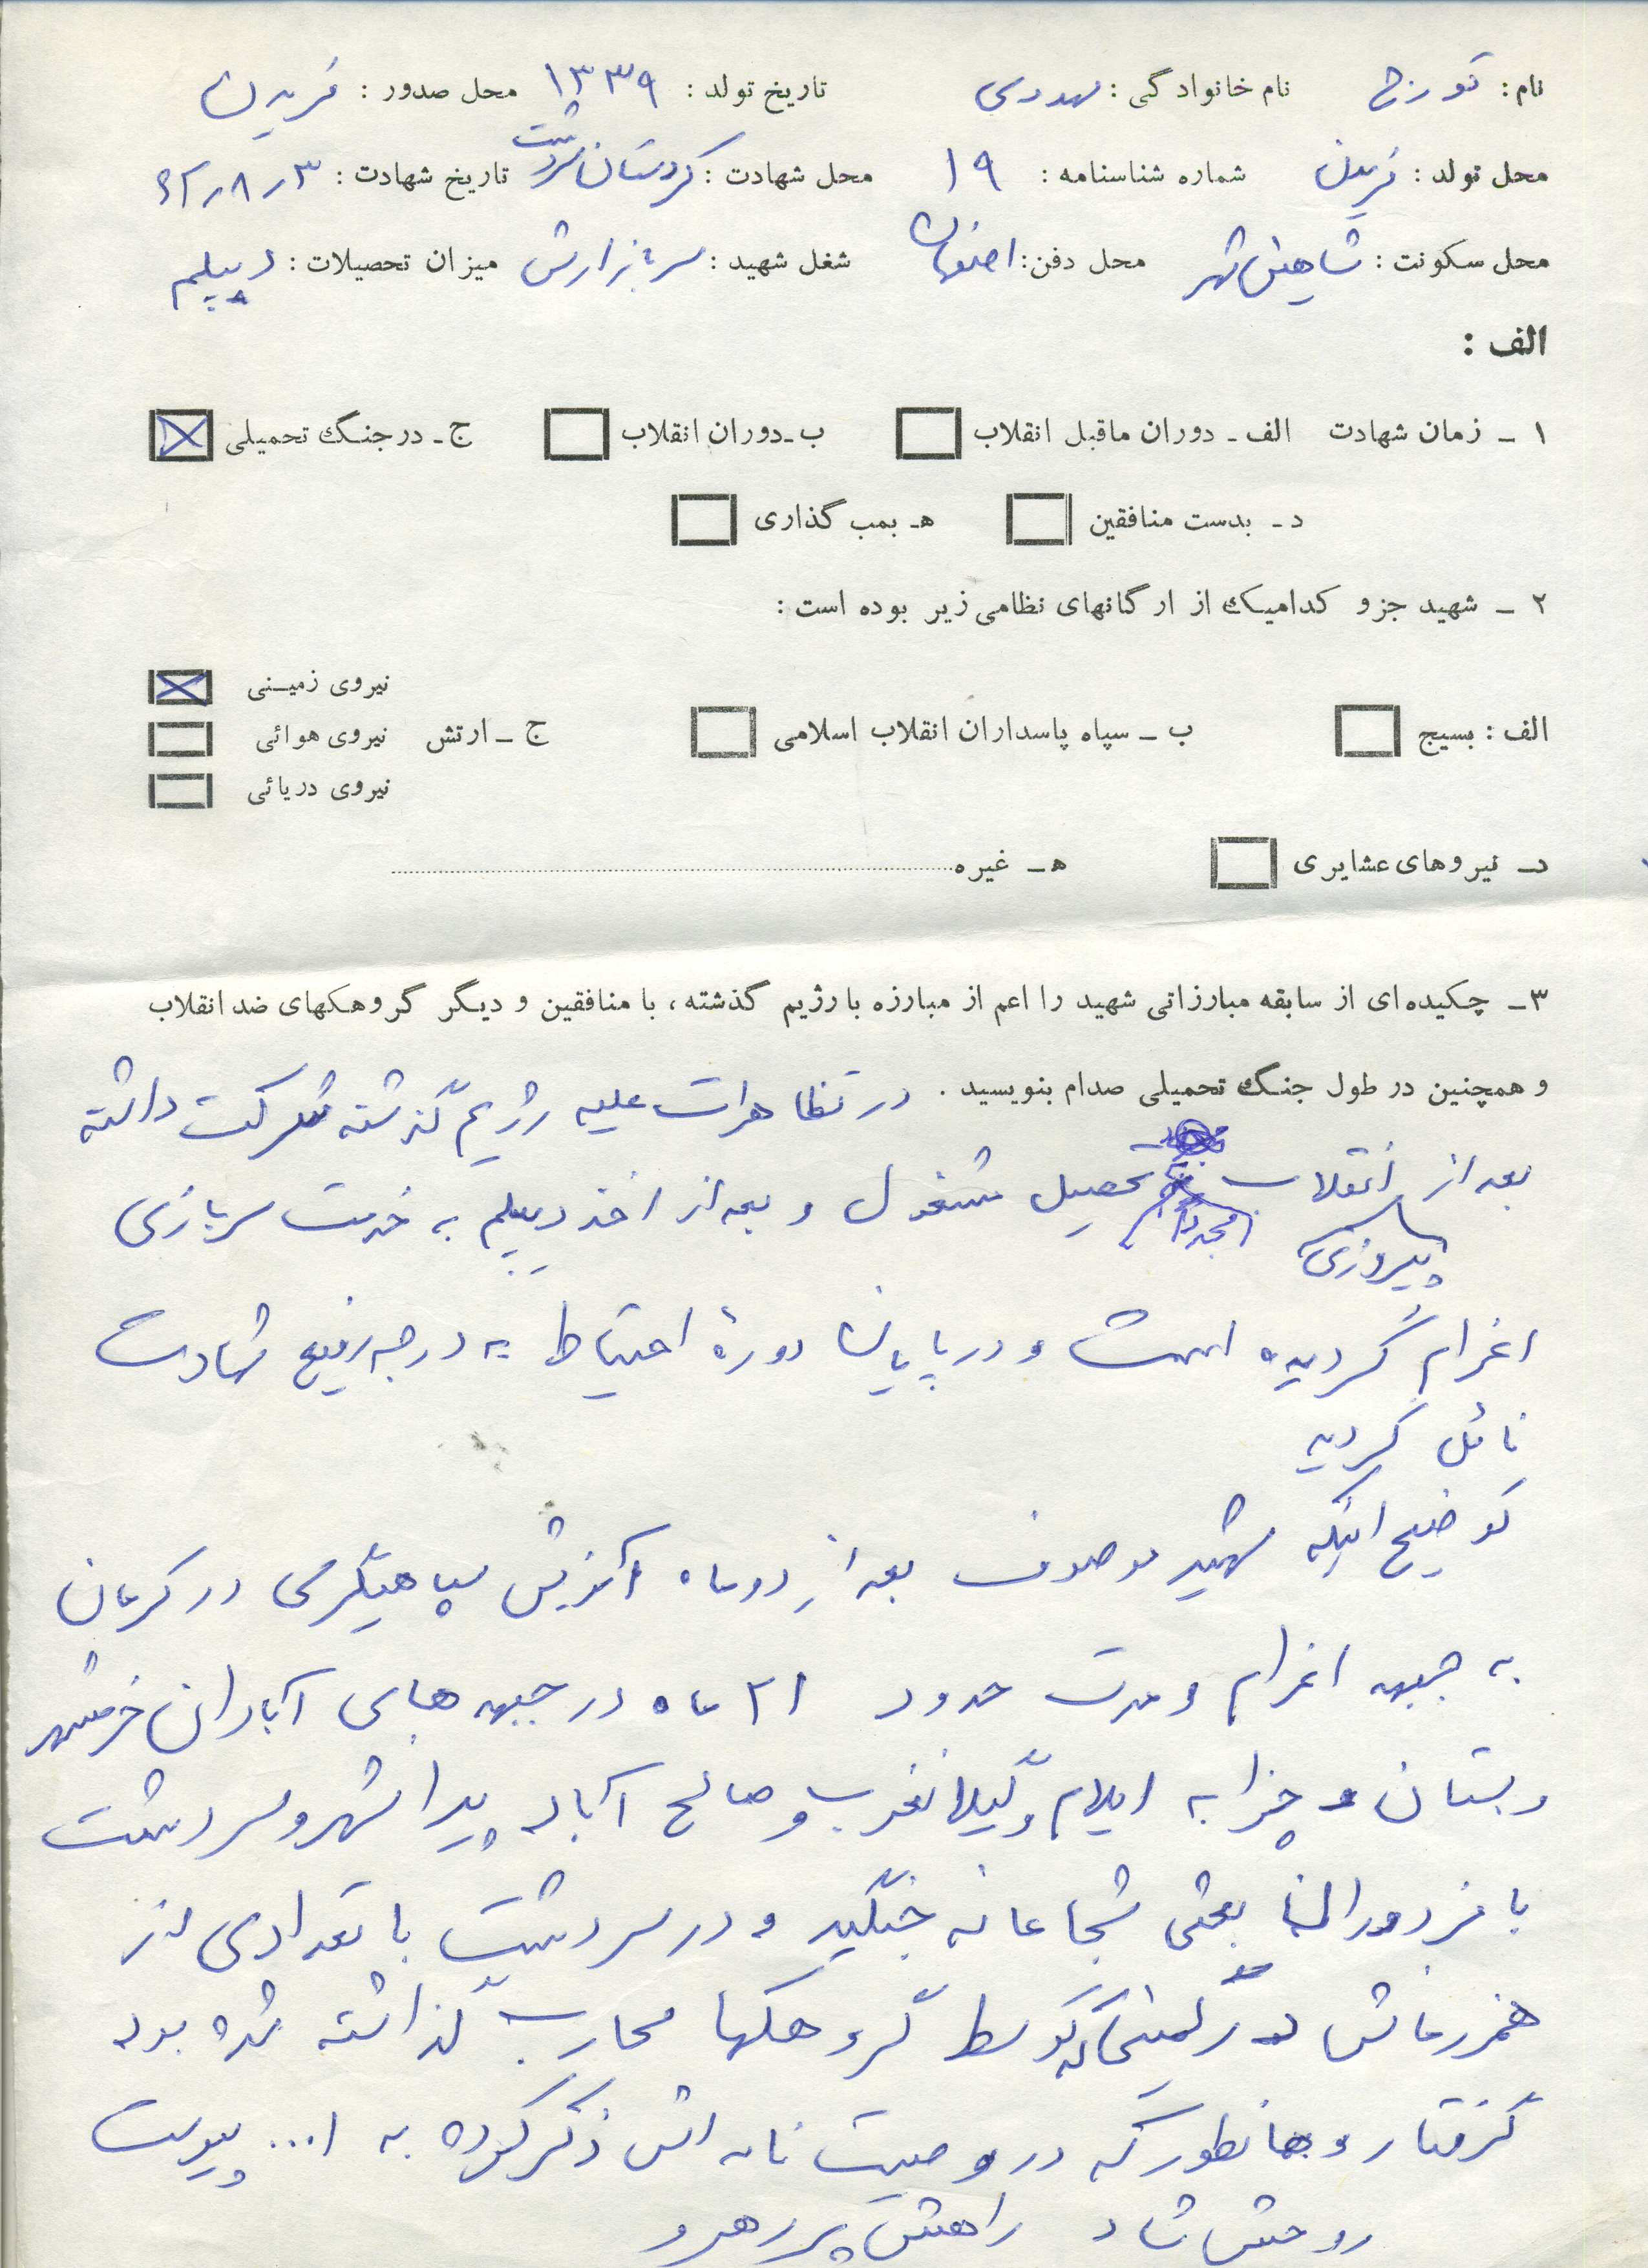 نام: تورج نام خانوادگی: مهدوی تاریخ تولد: ۱۳۳۹ محل صدور: فریدن
محل تولد: فریدن شماره شناسنامه: ۱۹ محل شهادت: کردستان سردشت تاریخ شهادت: ۶۲٫۸٫۳
محل سکونت: شاهین‌شهر محل دفن: اصفهان شغل شهید: سرباز ارتش میزان تحصیلات: دیپلم
الف:
۱ ـ زمان شهادت الف ـ دوران ماقبل انقلاب ب ـ دوران انقلاب ج ـ درجنگ تحمیلی
د ـ بدست منافقین ه ـ بمب گذاری
۲ ـ شهید جزو کدامیک از ارگانهای نظامی زیر بوده است:
نیروی زمینی
الف: بسیج ب ـ سپاه پاسداران انقلاب اسلامی ج ـ ارتش نیروی هوائی
نیروی دریائی
د ـ نیروهای عشایری ه ـ غیره
۳ ـ چکیده‌ای از سابقه مبارزاتی شهید را اعم از مبارزه با رژیم گذشته، با منافقین و دیگر گروهکهای ضد انقلاب
و همچنین در طول جنگ تحمیلی صدام بنویسید. در تظاهرات علیه رژیم گذشته شرکت داشته
بعد از پیروزی انقلاب مجدداً تحصیل مشغول و بعد از اخذ دیپلم به خدمت سربازی
اعزام گردیده است و در پایان دورهٔ احتیاط به درجه رفیع شهادت
نائل گردید
توضیح اینکه شهید موصوف بعد از دو ماه آموزش سپاهیگری در کرمان
به جبهه اعزام و مدت حدود ۲۱ ماه در جبهه های آبادان خرمشهر
و بستان و چزابه ایلام و گیلانغرب و صالح آباد پیرانشهر و سردشت
با مزدوران بعثی شجاعانه جنگید و در سردشت با تعدادی از
همرزمانش در کمینی که توسط گروهکها محارب گذاشته شده بود
گرفتار و همانطور که در وصیت نامه اش ذکر کرده به ا... پیوست
روحش شاد راهش پر رهرو